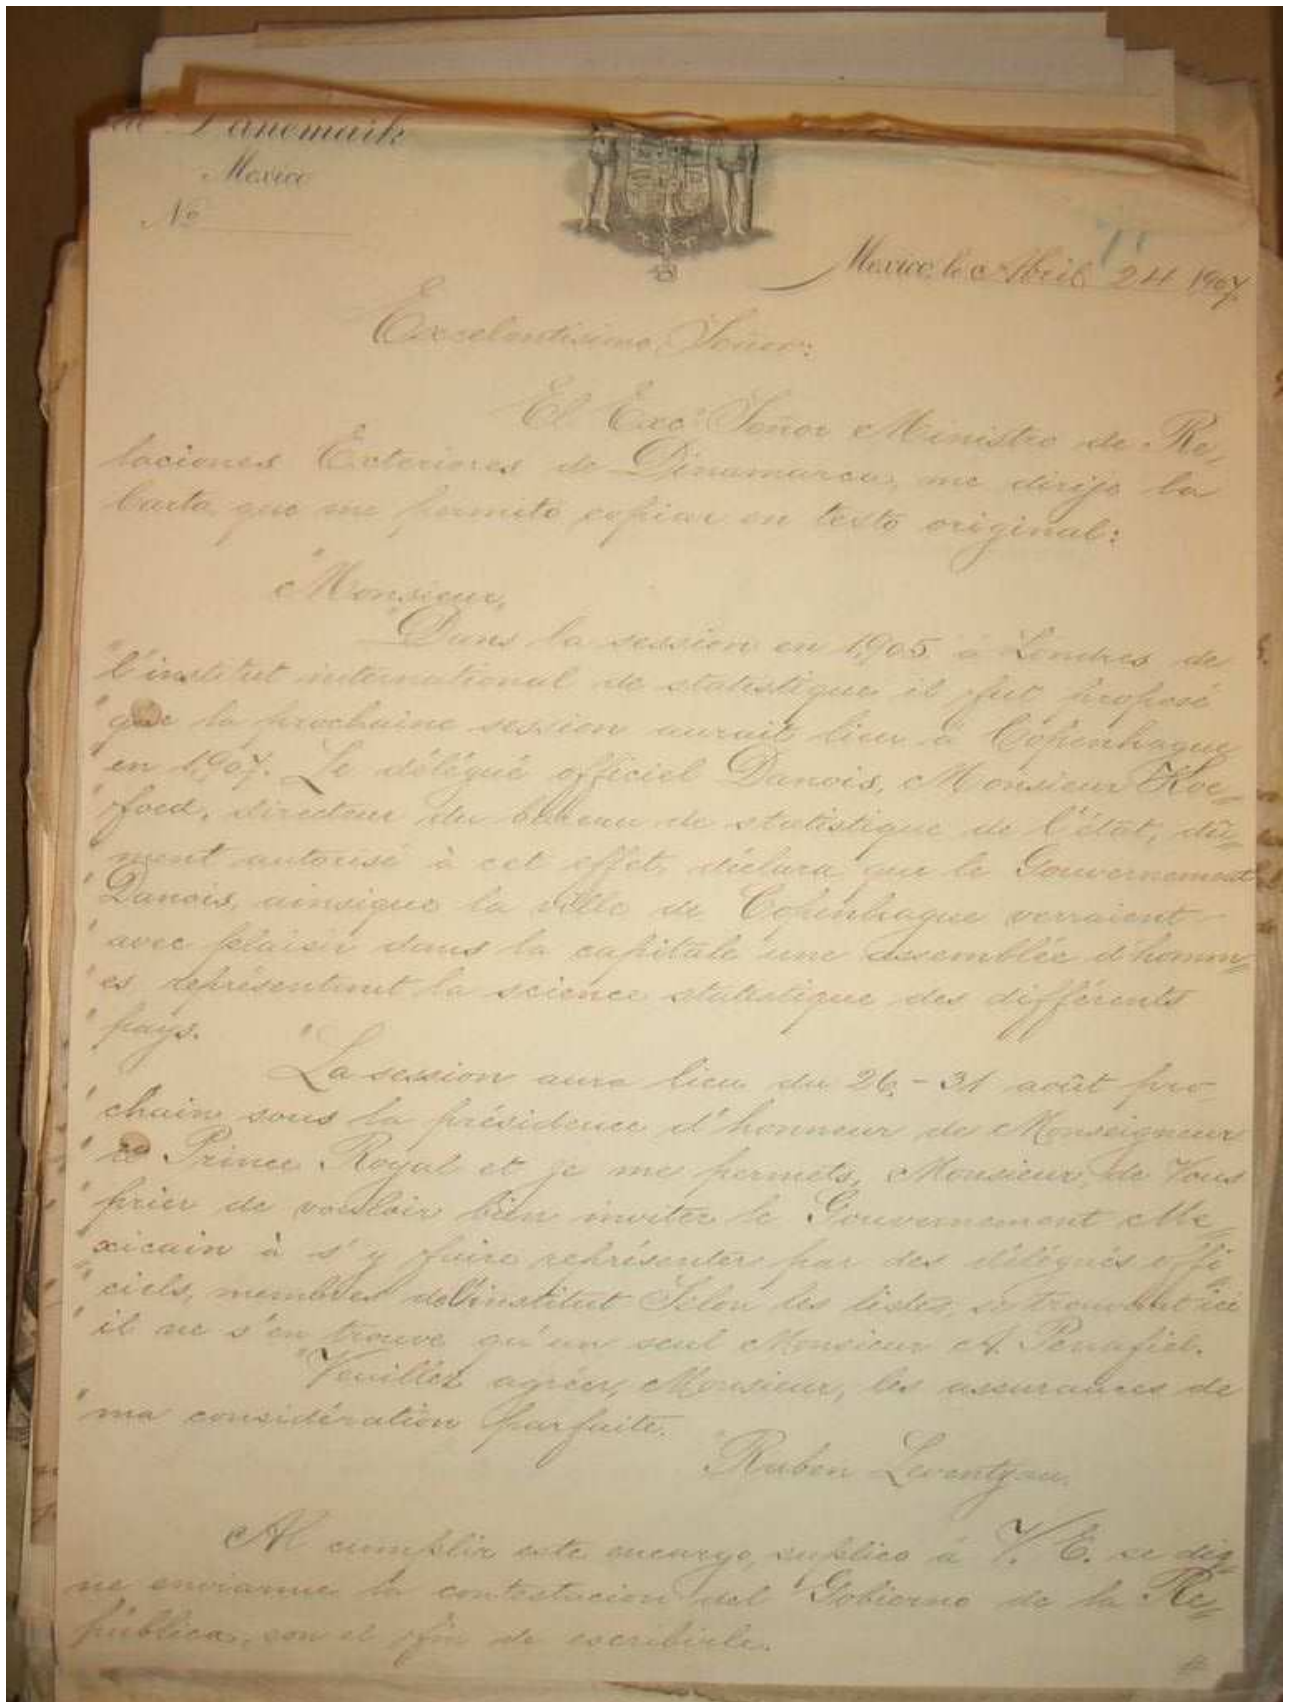 de Danemark
Mexico
No
Mexico, le Abril 24 1907.
Excelentisimo Señor:
El Exc. Señor Ministro de Re-
laciones Exteriores de Dinamarca, me dirije la
Carta que me permito copiar en texto original:
"Monsieur,
"Dans la session en 1905 à Londres de
"l'institut international de statistique il fut proposé
"que la prochaine session aurait lieu à Copenhague
"en 1907. Le délégué officiel Danois, Monsieur Koe=
"foed, directeur du bureau de statistique de l'état, dû=
"ment autorisé à cet effet, déclara que le Gouvernement
"Danois, ainsique la ville de Copenhague verraient
"avec plaisir dans la capitale une assemblée d'homm=
"es représentant la science statistique des différents
"pays.
"La session aura lieu du 26 - 31 août pro-
"chain sous la présidence d'honneur de Monseigneur
"le Prince Royal et je me permets, Monsieur, de Vous
"prier de vouloir bien inviter le Gouvernement Me=
"xicain à s'y faire représenter par des délégués offi=
"ciels, membres de l'institut Selon les listes, se trouvant ici
"il ne s'en trouve qu'un seul Monsieur A. Penafiel.
"Veuillez agréer, Monsieur, les assurances de
"ma considération parfaite.
"Raben Leventzau.
Al cumplir este encargo, suplico á V. E. se dig=
ne enviarme la contestacion del Gobierno de la Re=
pública, con el fin de escribirle.